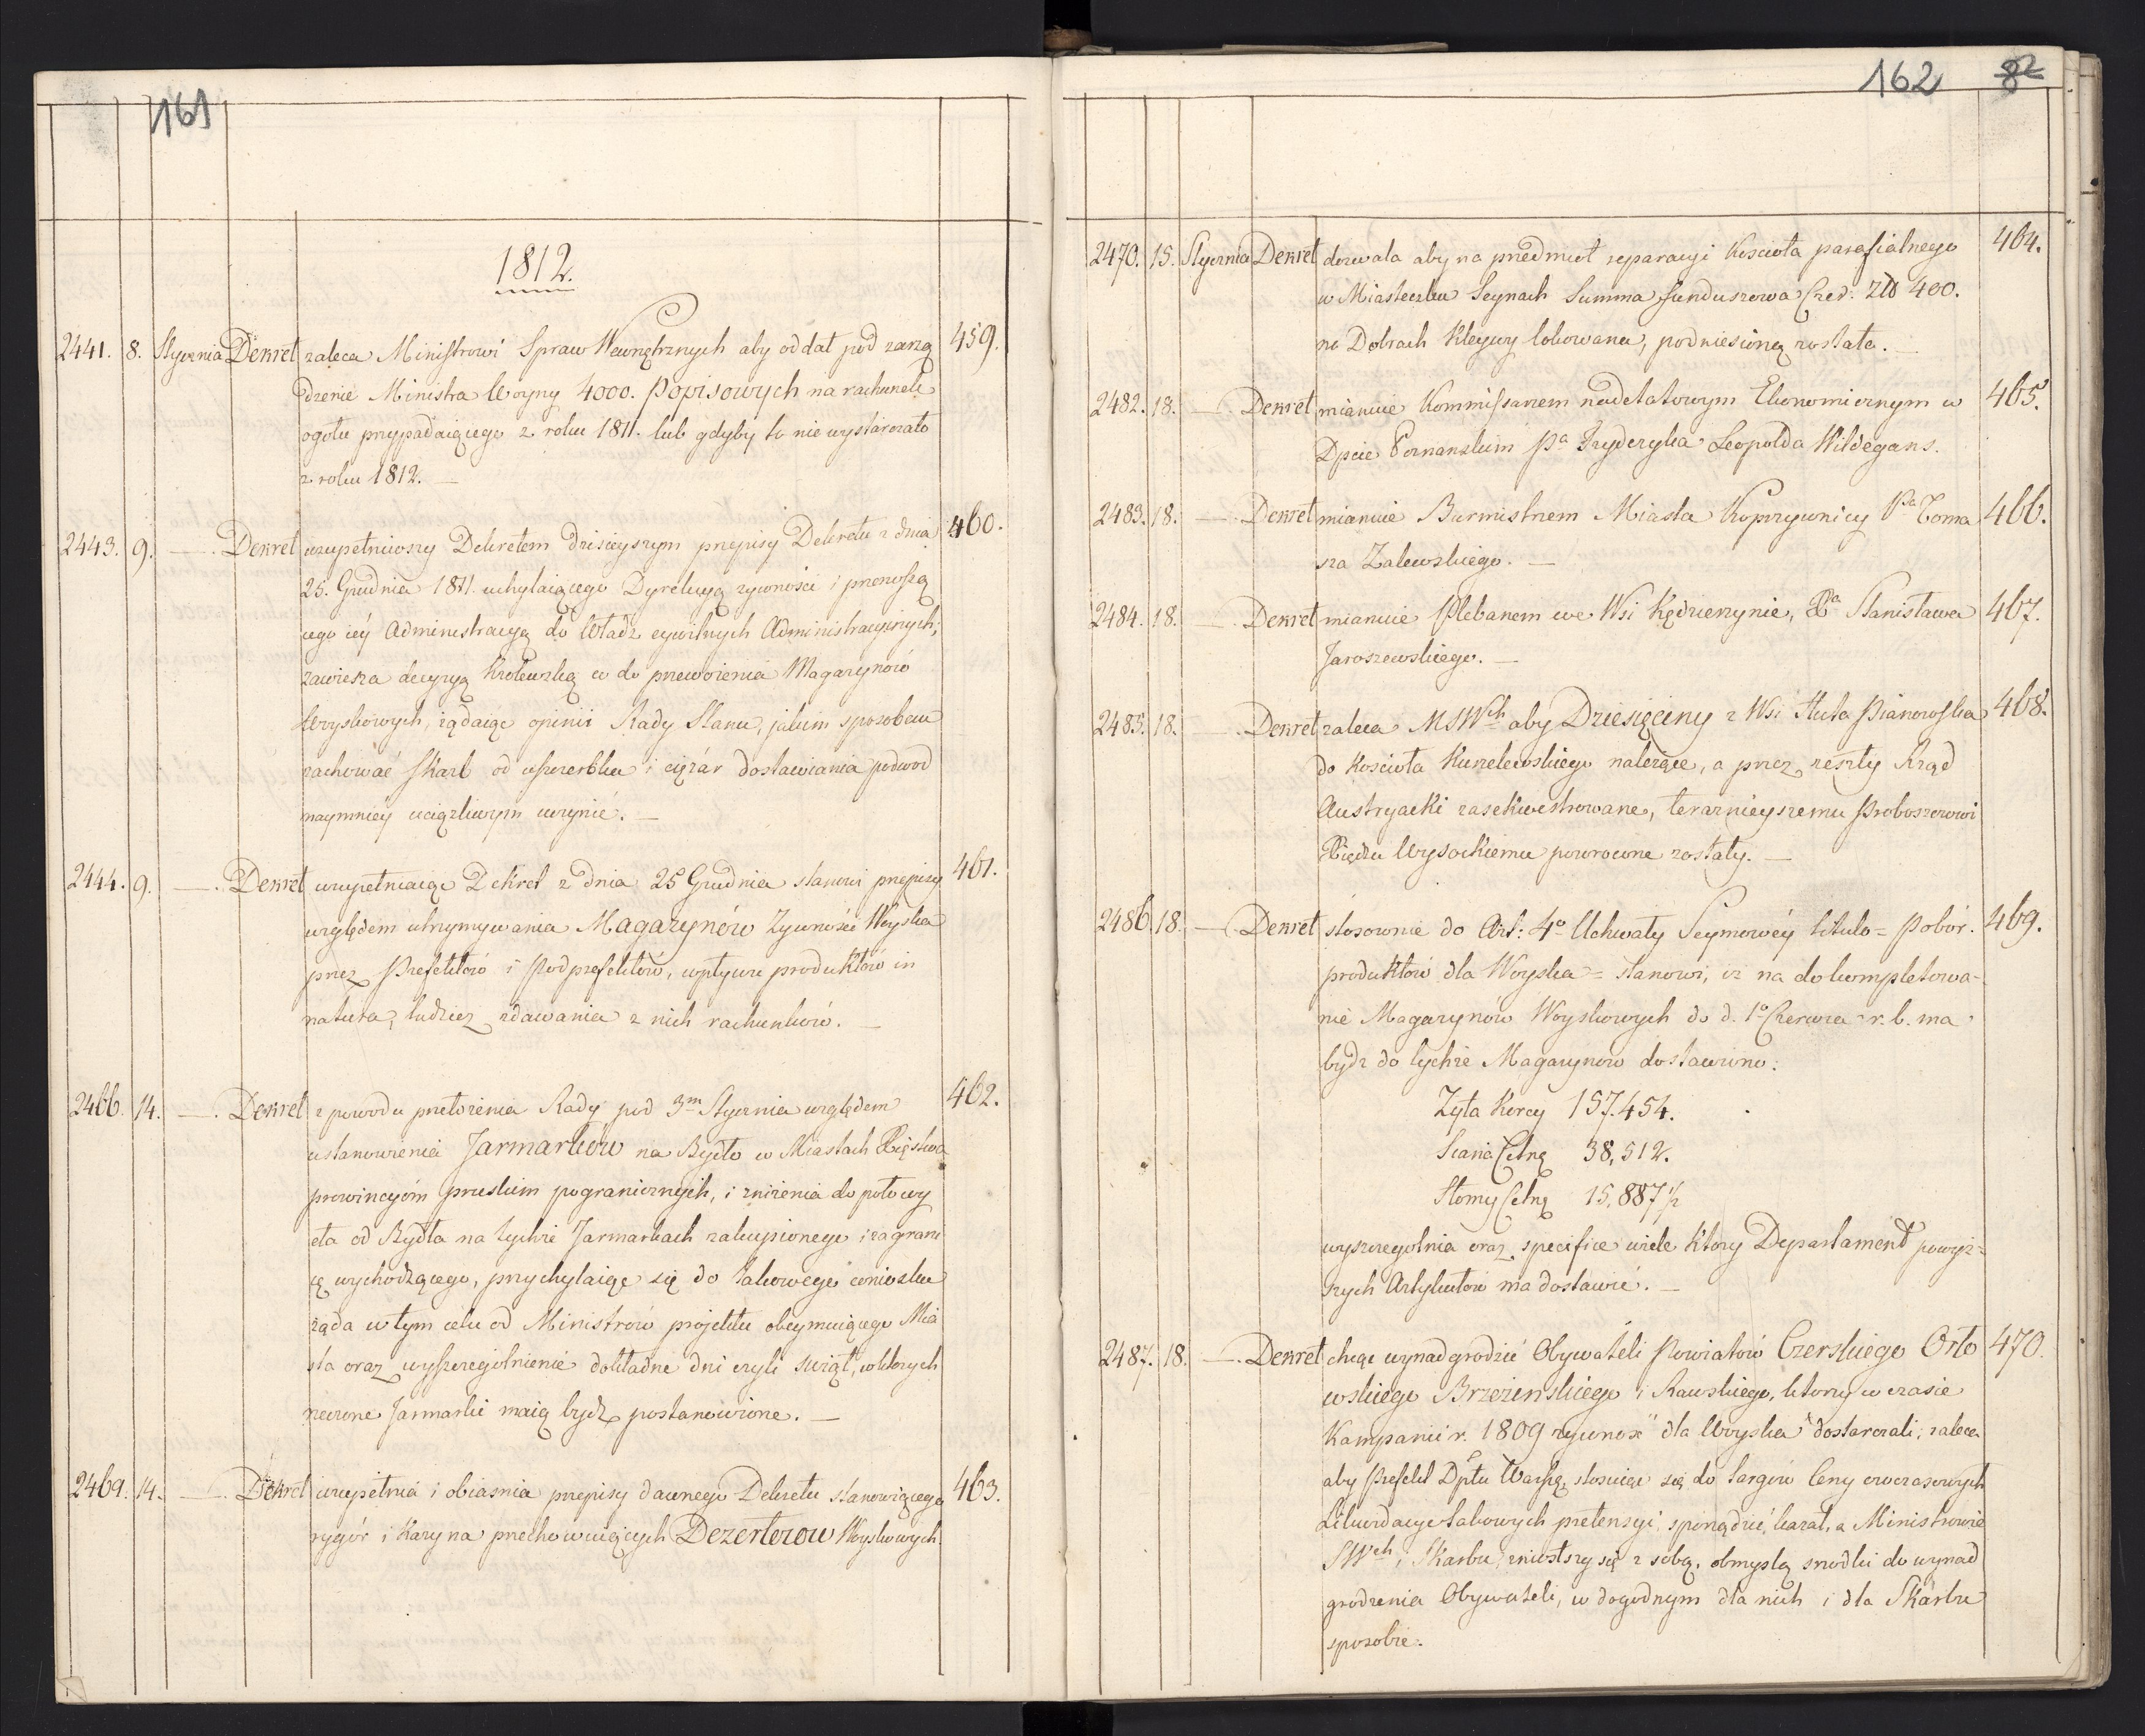 161
1812.
2441. 8. Stycznia Dekret zaleca Ministrowi Spraw Wewnętrznych aby oddał pod zarzą 459.
dzenie Ministra Woyny 4000. Popisowych na rachunek
ogółu przypadaiącego z roku 1811. lub gdyby to nie wystarczało
z roku 1812. —
2443. 9. —. Dekret uzupełniwszy Dekretem dzisieyszym przepisy Dekretu z dnia 460.
25. Grudnia 1811. uchylaiącego Dyrekcyą żywności i przenoszą
cego iéy Administracyą do Władz cywilnych Administracyinych;
zawiesza decyzyą Królewską co do przewożenia Magazynów
Woyskowych, żądaiąc opinii Rady Stanu, jakim sposobem
zachować Skarb od uszczerbku i ciężár dostawiania podwod
naymniéy uciążliwym uczynić. —
2444. 9. —. Dekret uzupełniaiąc Dekret z dnia 25 Grudnia stanowi przepisy 461.
względem utrzymywania Magazynów Zywności Woyska
przez Prefektów i Podprefektów, wpływu produktów in
natura, tudzież zdawania z nich rachunków. —
2466. 14. —. Dekret z powodu przełożenia Rady pod 3m Stycznia względem 462.
ustanowienia Jarmarków na Bydło w Miastach Xięstwa
prowincyóm pruskim pogranicznych, i zniżenia do połowy
cła od Bydła na tychże Jarmarkach zakupionego i zagrani
cę wychodzącego, przychylaiąc się do takowego wniosku
żąda w tym celu od Ministrów projektu obeymuiącego Mia
sta oraz wyszczególnienie dokładne dni czyli swiąt, w których
rzeczone Jarmarki maią bydź postanowione. —
2469. 14. —. Dekret uzupełnia i obiaśnia przepisy dawnego Dekretu stanowiącego 463.
rygór i Kary na przechowuiących Dezerterów Woyskowych
162 82
2470. 15. Stycznia Dekret dozwala aby na przedmiot reparacyi Kościoła parafialnego 464.
w Miasteczku Seynach Summa funduszowa Czer: Zło 400.
na Dobrach Klejwy lokowana, podniesioną została. —
2482. 18. —. Dekret mianuie Kommissarzem nadetatowym Ekonomicznym w 465.
Dpcie Poznanskim Pa Fryderyka Leopolda Wildegans.
2483. 18. —. Dekret mianuie Burmistrzem Miasta Koprzywnicy Pa Toma 466.
sza Zalewskiego. —
2484. 18. —. Dekret mianuie Plebanem we Wsi Kędzierzynie, Xa Stanisława 467.
Jaroszewskiego. —
2485. 18. —. Dekret zaleca MSWch aby Dziesięciny z Wsi Huta Pianowska 468.
do Kościoła Kurzelewskiego należące, a przez zeszły Rząd
Austryacki zasekwestrowane, teraznieyszemu Proboszczowi
Xiędzu Wysockiemu powrocone zostały. —
2486. 18. —. Dekret stosownie do Art: 4o Uchwały Seymowéy titulo = Pobór. 469.
produktów dla Woyska = stanowi, iż na dokompletowa-
nie Magazynów Woyskowych do d. 1o Czerwca r. b. ma
bydz do tychże Magazynow dostawiono:
Zyta Korcy 157.454.
Siana Cetnę 38,512.
Słomy Cetnę 15,887 1/2
wyszczególnia oraz specifice wiele Który Departament powyż=
szych Artykułów ma dostawić. —
2487. 18. —. Dekret chcąc wynadgrodzić Obywateli Powiatów Czerskiego Orło 470.
wskiego Brzezinskiego i Rawskiego, którzy w czasie
Kampanii r. 1809 zywność dla Woyska dostarczali; zaleca
aby Prefekt Dptu Warszę, stosuiąc się do targów Ceny owczasowych
Likwidacye takowych pretensyi sporządzić kazał, a Ministrowie
SWch i Skarbu, zniosłszy się z sobą, obmyślą srodki do wynad
grodzenia Obywateli, w dogodnym dla nich i dla Skárbu
sposobie.